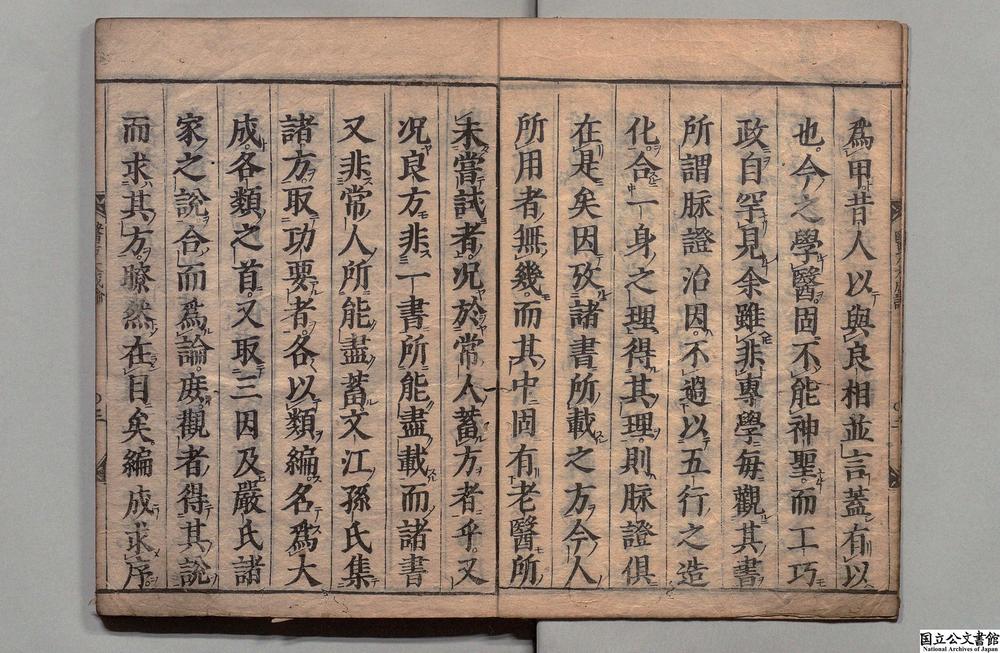 爲甲昔人以與良相並言蓋有以
也今之學醫固不能神聖而工巧
政自罕見余雖非專學每觀其書
所謂脉證治因不過以五行之造
化合一身之理得其理則脉證俱
在是矣因攷諸書所載之方今人
所用者無幾而其中固有老醫所
未嘗試者况於常人蓄方者乎又
况良方非一書所能盡載而諸書
又非常人所能盡蓄文江孫氏集
諸方取功要者各以類編名爲大
成各類之首又取三因及嚴氏諸
家之說合而爲論庶觀者得其說
而求其方瞭然在目矣編成求序
国立公文書館
National Archives of Japan